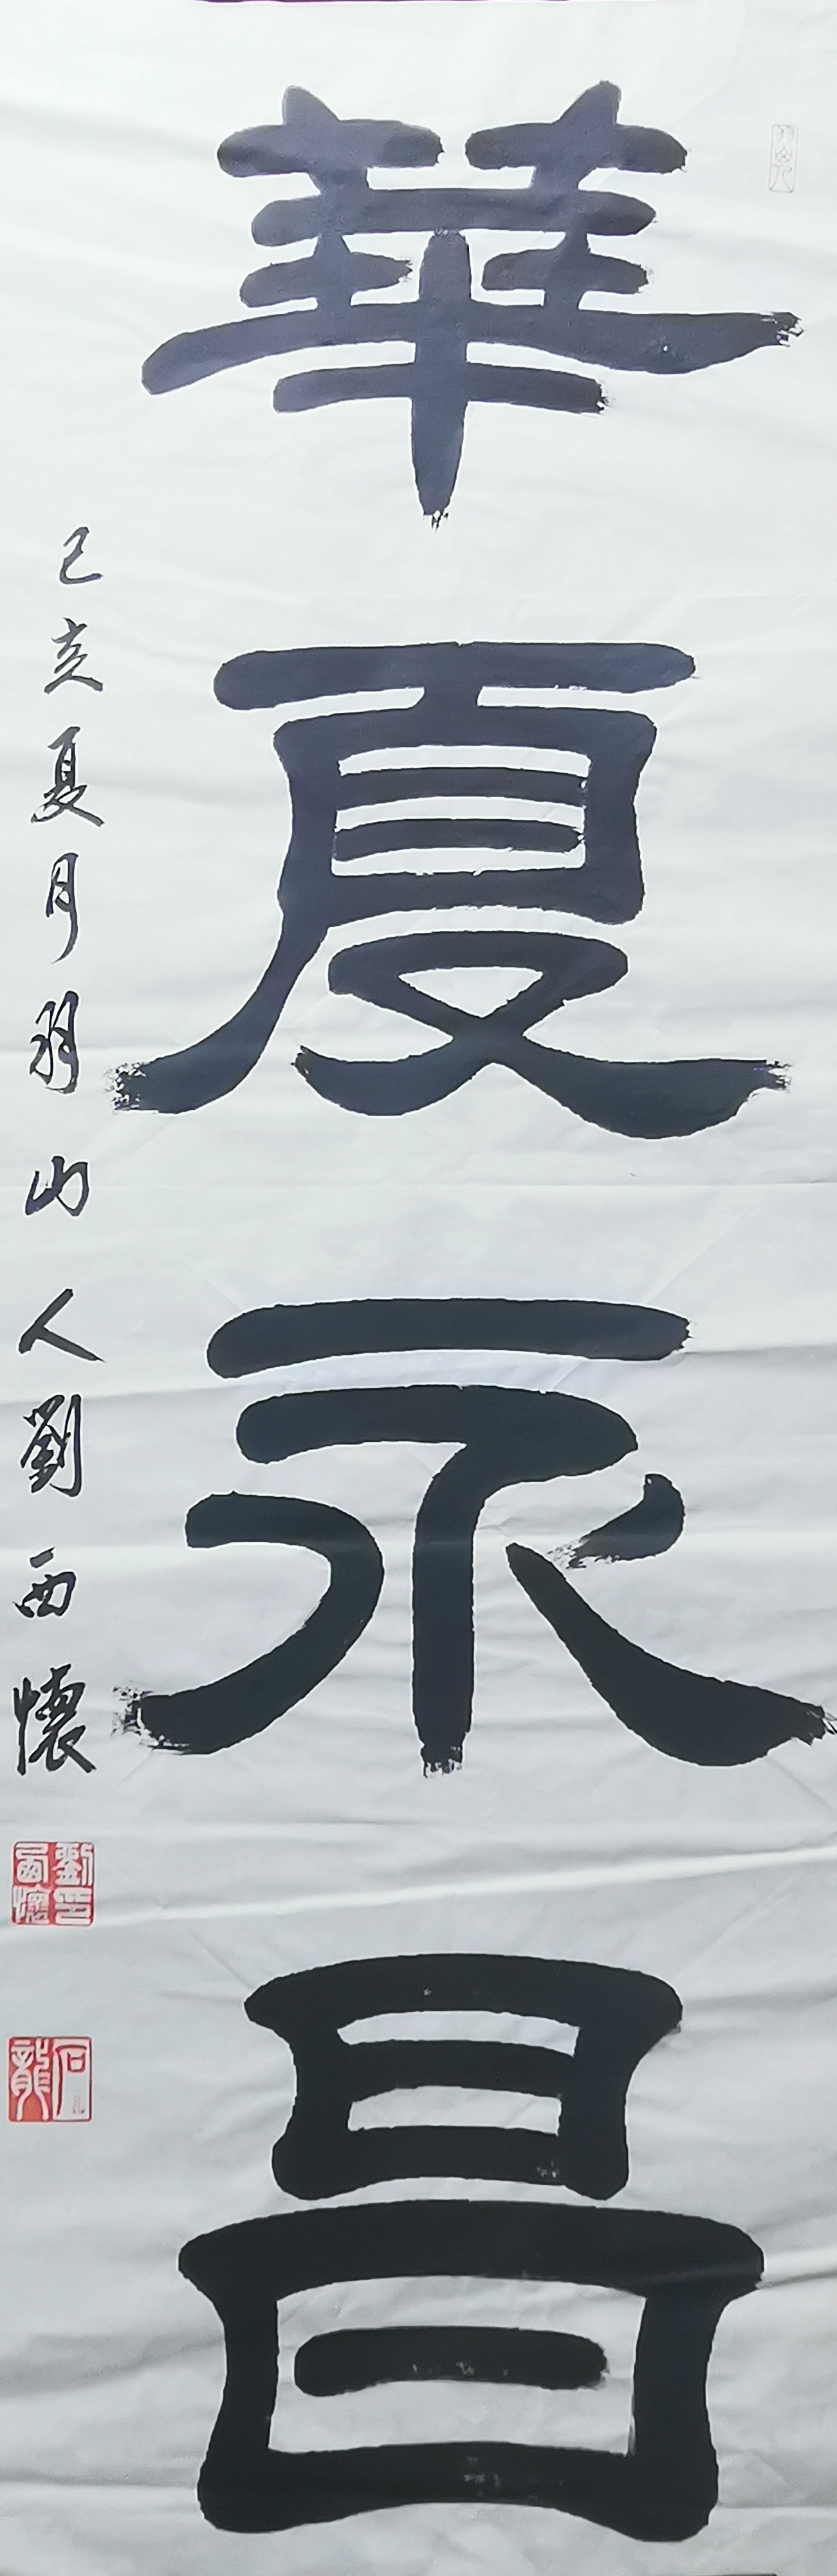 華夏永昌
己亥夏月羽山人劉西懷
劉西懷印
石龍